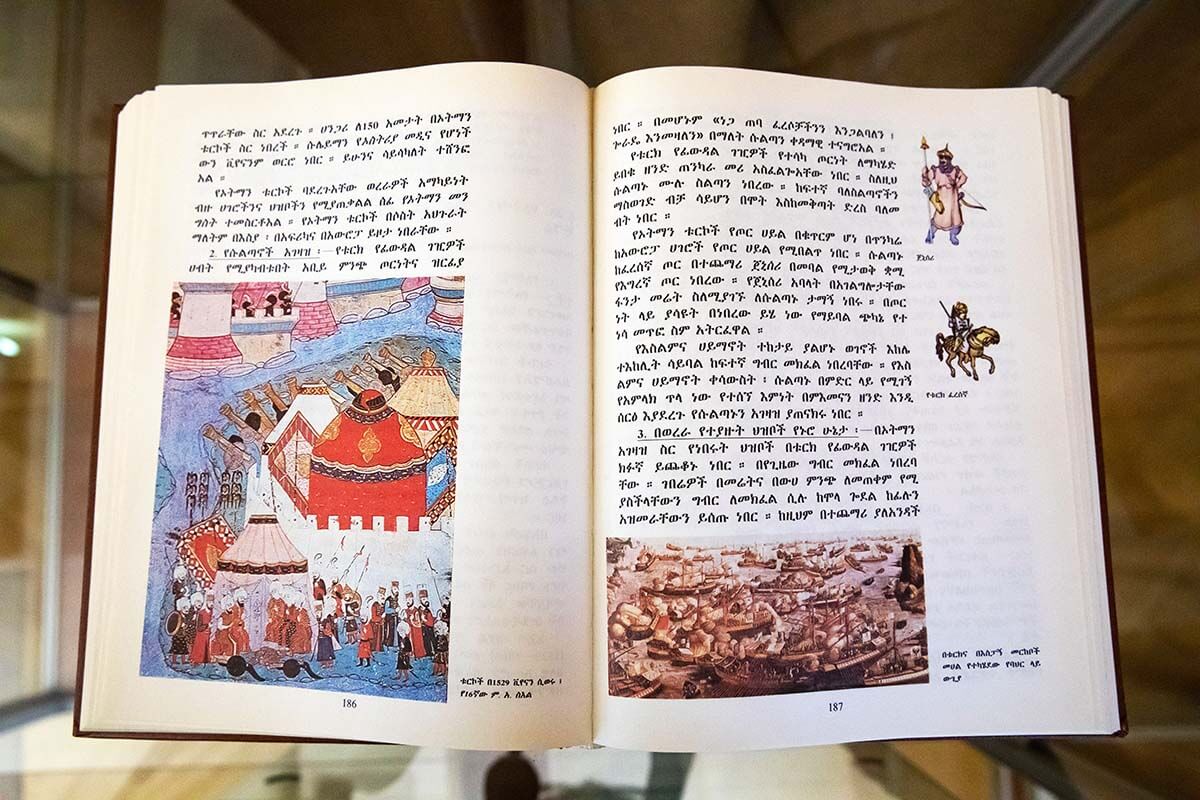 ጥጥራቸው ስር አደረጉ ። ሀንጋሪ ለ150 አመታት በኦትማን
ቱርኮች ስር ነበረች ። ሱሌይማን የኦስትሪያ መዲና የሆነች
ውን ቪየናንም ወርሮ ነበር ። ይሁንና ሳይሳካለት ተሸንፎ
አል ።
የኦትማን ቱርኮች ባደረጉአቸው ወረራዎች አማካይነት
ብዙ ሀገሮችንና ህዝቦችን የሚያጠቃልል ሰፊ የኦትማን መን
ግስት ተመስርቶአል ። የኦትማን ቱርኮች በሶስት አህጉራት
ማለትም በእስያ ፡ በአፍሪካና በአውሮፓ ይዞታ ነበራቸው ።
2. የሱልጣኖች አገዛዝ ፡—የቱርክ የፊውዳል ገዢዎች
ሀብት የሚያካብቱበት አቢይ ምንጭ ጦርነትና ዝርፊያ
ቱርኮች በ1529 ቪየናን ሲወሩ ፤
የ16ኛው ም. አ. ስእል
186
ነበር ። በመሆኑም «ነጋ ጠባ ፈረሶቻችንን እንጋልባለን ፤
ጐራዴ እንመዛለን» በማለት ሱልጣን ቀዳማዊ ተናግሮአል ።
የቱርክ የፊውዳል ገዢዎች የተሳካ ጦርነት ለማካሄድ
ይበቁ ዘንድ ጠንካራ መሪ አስፈልጎአቸው ነበር ። ስለዚህ
ሱልጣኑ ሙሉ ስልጣን ነበረው ። ከፍተኛ ባለስልጣኖችን
ማስወገድ ብቻ ሳይሆን በሞት እስከመቅጣት ድረስ ባለመ
ብት ነበር ።
የኦትማን ቱርኮች የጦር ሀይል በቁጥርም ሆነ በጥንካሬ
ከአውሮፓ ሀገሮች የጦር ሀይል የሚበልጥ ነበር ። ሱልጣኑ
ከፈረሰኛ ጦር በተጨማሪ ጀኒሰሪ በመባል የሚታወቅ ቋሚ
የእግረኛ ጦር ነበረው ። የጀኒሰሪ አባላት በአገልግሎታቸው
ፋንታ መሬት ስለሚያገኙ ለሱልጣኑ ታማኝ ነበሩ ። በጦር
ነት ላይ ያሳዩት በነበረው ይሄ ነው የማይባል ጭካኔ የተ
ነሳ መጥፎ ስም አትርፈዋል ።
የእስልምና ሀይማኖት ተከታይ ያልሆኑ ወገኖች እከሌ
ተእከሊት ሳይባል ከፍተኛ ግብር መክፈል ነበረባቸው ። የእስ
ልምና ሀይማኖት ቀሳውስት ፡ ሱልጣኑ በምድር ላይ የሚገኝ
የአምላክ ጥላ ነው የተሰኘ እምነት በምእመናን ዘንድ እንዲ
ሰርፅ እያደረጉ የሱልጣኑን አገዛዝ ያጠናክሩ ነበር ።
3. በወረራ የተያዙት ህዝቦች የኑሮ ሁኔታ ፡—በኦትማን
አገዛዝ ስር የነበሩት ህዝቦች በቱርክ የፊውዳል ገዢዎች
ክፉኛ ይጨቆኑ ነበር ። በየጊዜው ግብር መክፈል ነበረባ
ቸው ። ገበሬዎች በመሬትና በውሀ ምንጭ ለመጠቀም የሚ
ያስችላቸውን ግብር ለመክፈል ሲሉ ከሞላ ጎደል ከፊሉን
አዝመራቸውን ይሰጡ ነበር ። ከዚህም በተጨማሪ ያለአንዳች
ጀኒሰሪ
የቱርክ ፈረሰኛ
በቱርክና በእስፓኝ መርከቦች
መሀል የተካሄደው የባህር ላይ
ውጊያ
187